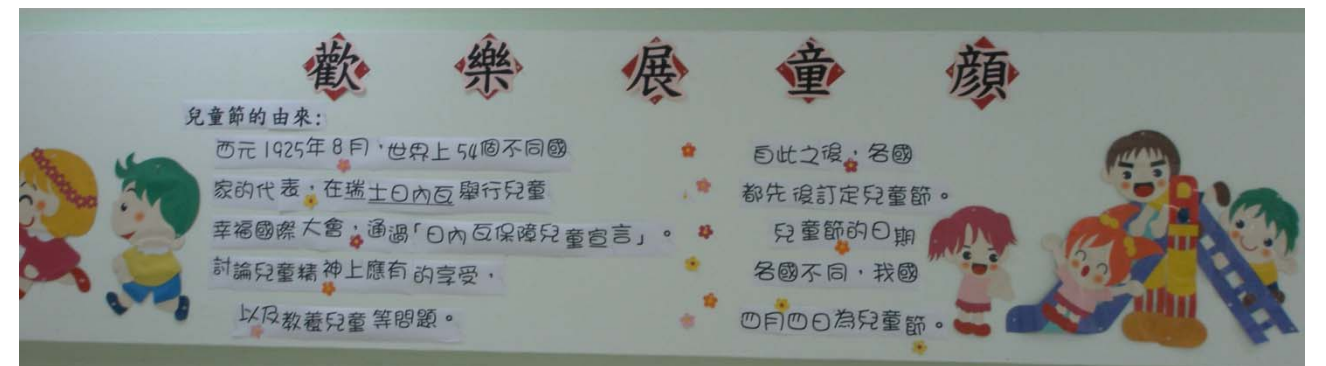 歡樂展童顏
兒童節的由來:
西元1925年8月,世界上54個不同國
家的代表,在瑞士日內瓦舉行兒童
幸福國際大會,通過「日內瓦保障兒童宣言」。
討論兒童精神上應有的享受,
以及教養兒童等問題。
自此之後,各國
都先後訂定兒童節。
兒童節的日期
各國不同,我國
四月四日為兒童節。